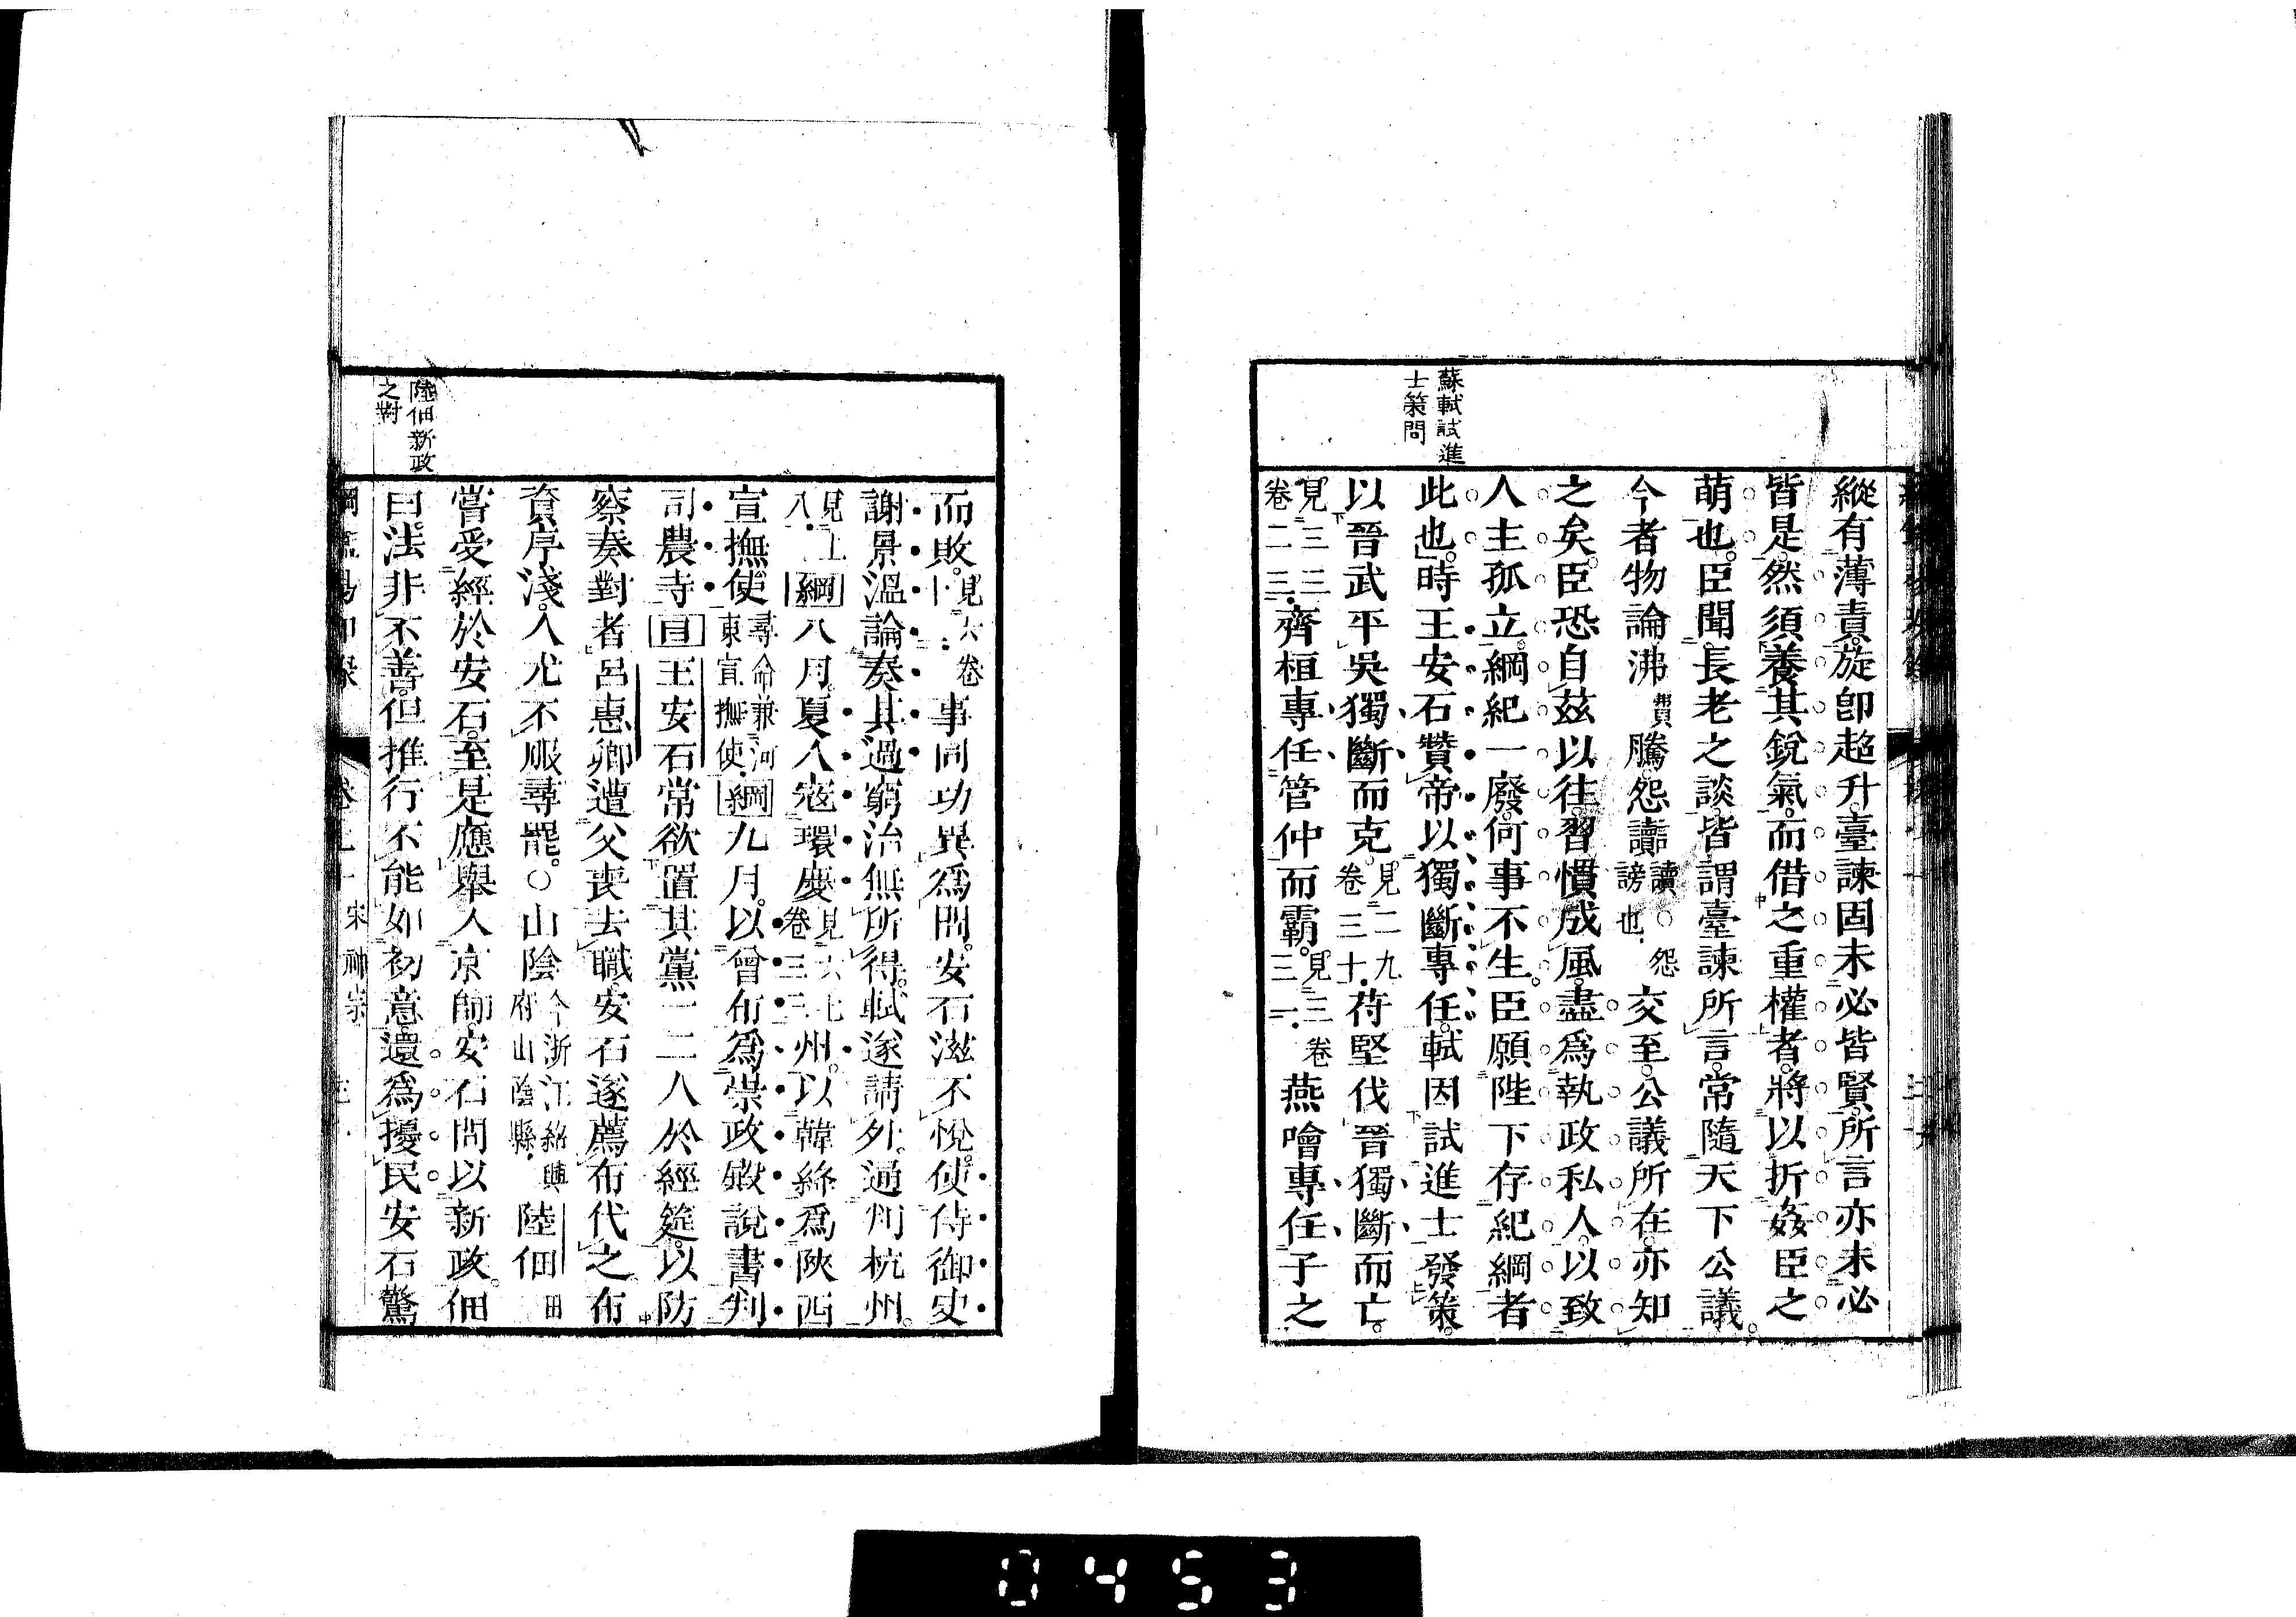 蘇軾試進
士策問
縱有薄責。旋卽超升。臺諫固未必皆賢。所言亦未必
皆是。然須養其銳氣。而借之重權者。將以折姦臣之
萌也。臣聞長老之談。皆謂臺諫所言。常隨天下公議。
今者物論沸費騰。怨讟讀○怨謗也交至。公議所在。亦知
之矣。臣恐自茲以往。習慣成風。盡爲執政私人。以致
人主孤立。綱紀一廢。何事不生。臣願陛下存紀綱者
此也。時王安石贊帝以獨斷專任。軾因試進士發策。
以晉武平吳獨斷而克。見二九卷三十苻堅伐晉獨斷而亡。
見三三卷二三齊桓專任管仲而霸。見三卷三一燕噲專任子之
陸佃新政
之對
而敗。見六卷事同功異爲問。安石滋不悅。使侍御史
謝景溫論奏其過。窮治無所得。軾遂請外。通判杭州。
見上八綱八月。夏人寇環慶見六七卷三三州。以韓絳爲陝西
宣撫使尋命兼河東宣撫使綱九月。以曾布爲崇政殿說書判
司農寺目王安石常欲置其黨一二人於經筵。以防
察奏對者。呂惠卿遭父喪去職。安石遂薦布代之。布
資序淺。人尤不服。尋罷。○山陰今浙江紹興府山陰縣陸佃田
嘗受經於安石。至是應舉入京師。安石問以新政。佃
曰。法非不善。但推行不能如初意。還爲擾民。安石驚
宋神宗
0453